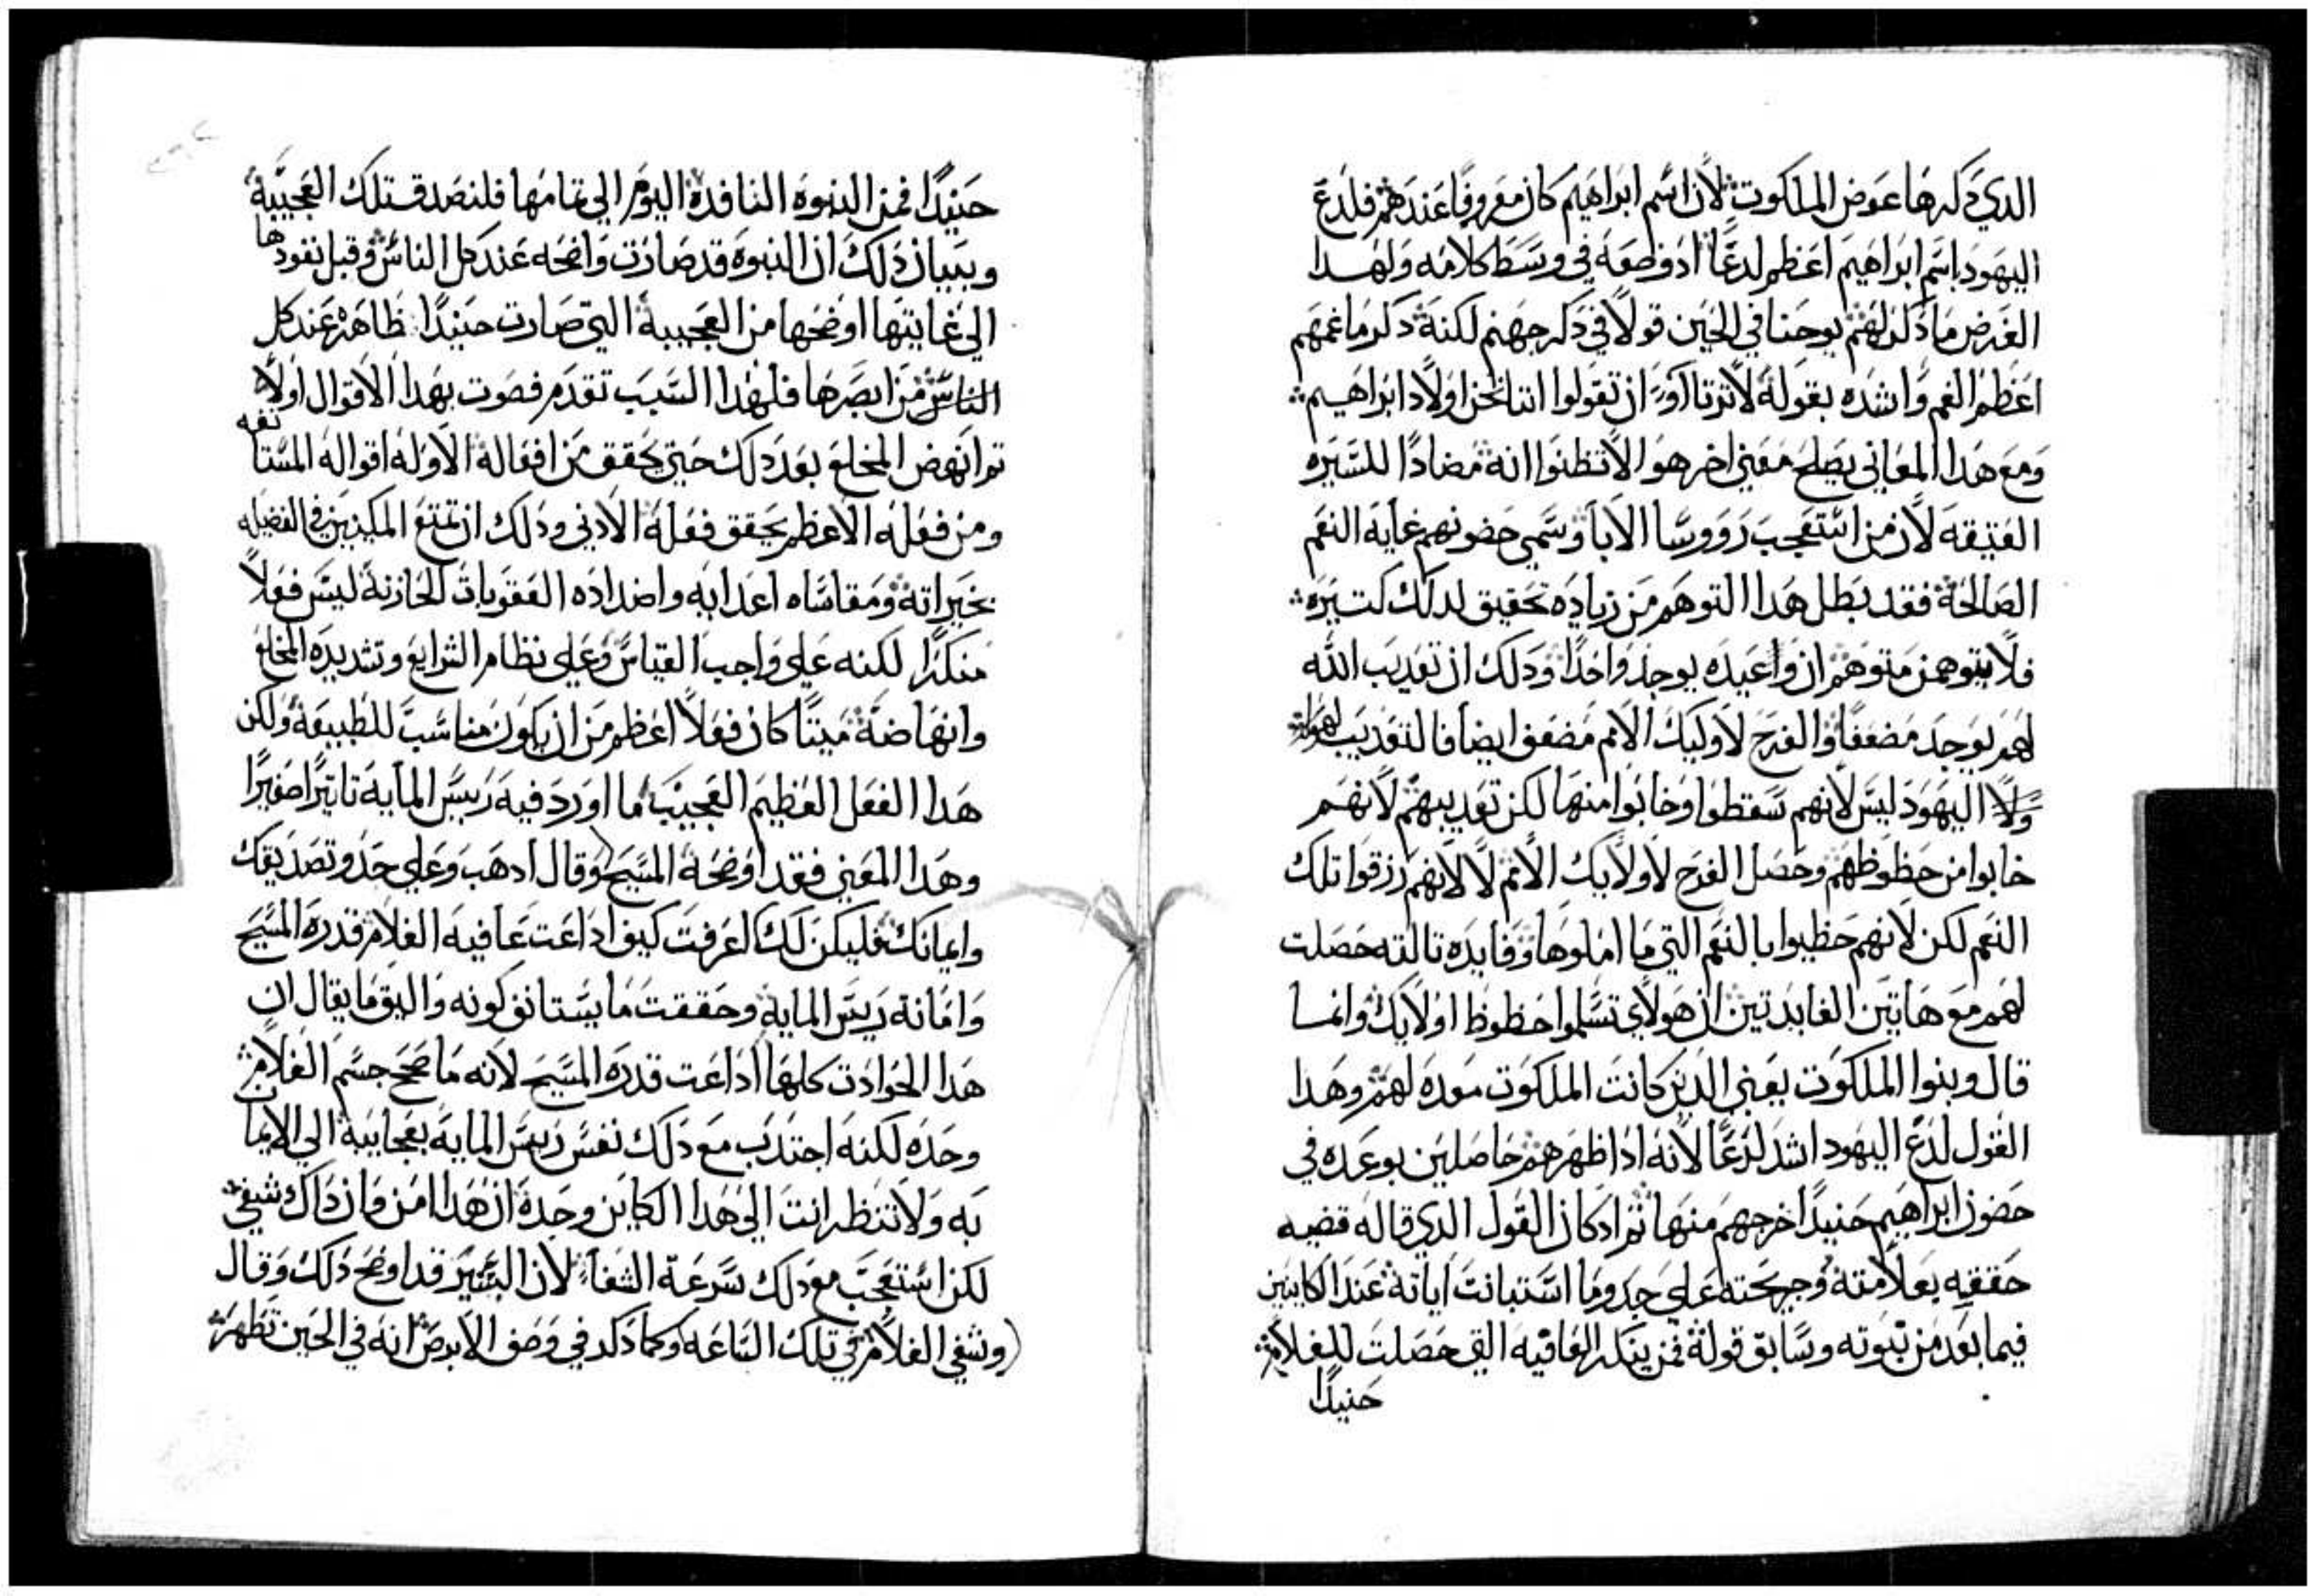 الدي دكرها عوض الملكوت لان اسم ابراهيم كان معروفا عندهم فلدع
اليهود باسم ابراهيم اعظم لدعا اد وضعه في وسط كلامه ولهدا
الغرض ما دكر لهم يوحنا في الحين قولا في دكر جهنم لكنه دكر ما غمهم
اعظم الغم واشده بقوله لا ترتااوا ان تقولوا اننا نحن اولاد ابراهيم
ومع هدا المعاني يصلح معني اخر هو الا تظنوا انه مضادا للسيره
العتيقه لان من استعجب روورسا الابا وسمي حضونهم غايه النعم
الصالحه فقد بطل هدا التوهم من زياده تحقيق لدلك كتيره
فلا يتوهمن متوهم ان واعيده يوجد واحدا ودلك ان تعديب الله
لهم يوجد مضعفا والفرح لاوليك الامم مضعف ايضا فالتعديب لهولا
ولا اليهود ليس لانهم سقطوا وخابوا منها لكن تعديبهم لانهم
خابوا من حظوظهم وحصل الفرح لاولايك الامم لا لانهم رزقوا تلك
النعم لكن لانهم حظيوا بالنعم التي ما املوها وفايده تالته حصلت
لهم مع هاتين الفايدتين ان هولاي تسلموا حظوظ اولايك وانما
قال وبنوا الملكوت يعني الدين كانت الملكوت معده لهم وهدا
القول لدع اليهود اشد لدعا لانه ادا ظهرهم حاصلين بوعده في
حضون ابراهيم حنيدا اخرجهم منها تم اد كان القول الدي قاله قضيه
حققه بعلامته وجريحته علي حدو ما استبانت اياته عند الكاينين
فيما بعد من نبوته وسابق قوله فمن ينكر العافيه التي حصلت للغلام
حنيدا
حنيدا فمن النبوه النافده اليوم الي تمامها فلنصدق تلك العجيبه
وبيان دلك ان النبوه قد صارت واضحه عند كل الناس وقبل نفودها
الي غايتها اوضحها من العجيبه التي صارت حنيدا ظاهره عند كل
الناس من ابصرها فلهدا السبب تقدم فصوت بهدا الاقوال اولا
تم انهض المخلع بعد دلك حتي يحقق من افعاله الاوله اقواله المستانفه
ومن فعله الاعظم يحقق فعله الادني ودلك ان تمتع المكينين في الفضيله
بخيراته ومقاساه اعدايه واضداده العقوبات الحازنه ليس فعلا
منكرا لكنه علي واجب القياس وعلي نظام الشرايع وتشديده المخلع
وانهاضه ميتا كان فعلا اعظم من ان يكون مناسب للطبيعه ولكن
هدا الفعل العظيم العجيب ما اورد فيه رييس المايه تاتيرا صغيرا
وهدا المعني فقد اوضحه المسيح وقال ادهب وعلي حدو تصديقك
وايمانك فليكن لك اعرفت كيف اداعت عافيه الغلام قدره المسيح
وامانه رييس المايه وحققت ما يستانف كونه واليق ما يقال ان
هدا الحوادت كلها اداعت قدره المسيح لانه ما صحح جسم الغلام
وحده لكنه اجتدب مع دلك نفس رييس المايه بعجايبه الي الايمان
به ولا تنظر انت الي هدا الكاين وحده ان هدا امن وان داك شفي
لكن استعجب مع دلك سرعه الشفا لان البشير قد اوضح دلك وقال
وشفي الغلام في تلك الساعه وكما دكر في وصف الابرص انه في الحين تطهر